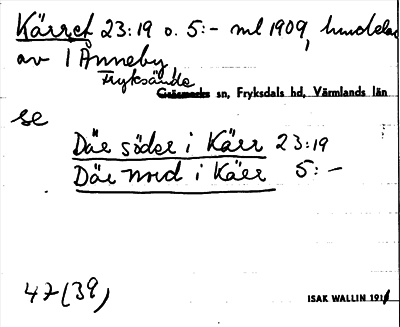 Kärret 23:19 o. 5:- ml 1909, hundelar
av 1 Änneby
Fryksände
sn, Fryksdals hd, Värmlands län
se
Där söder i Kärr 23:19
Där nord i Kärr 5:-
47 (39)
ISAK WALLIN 191